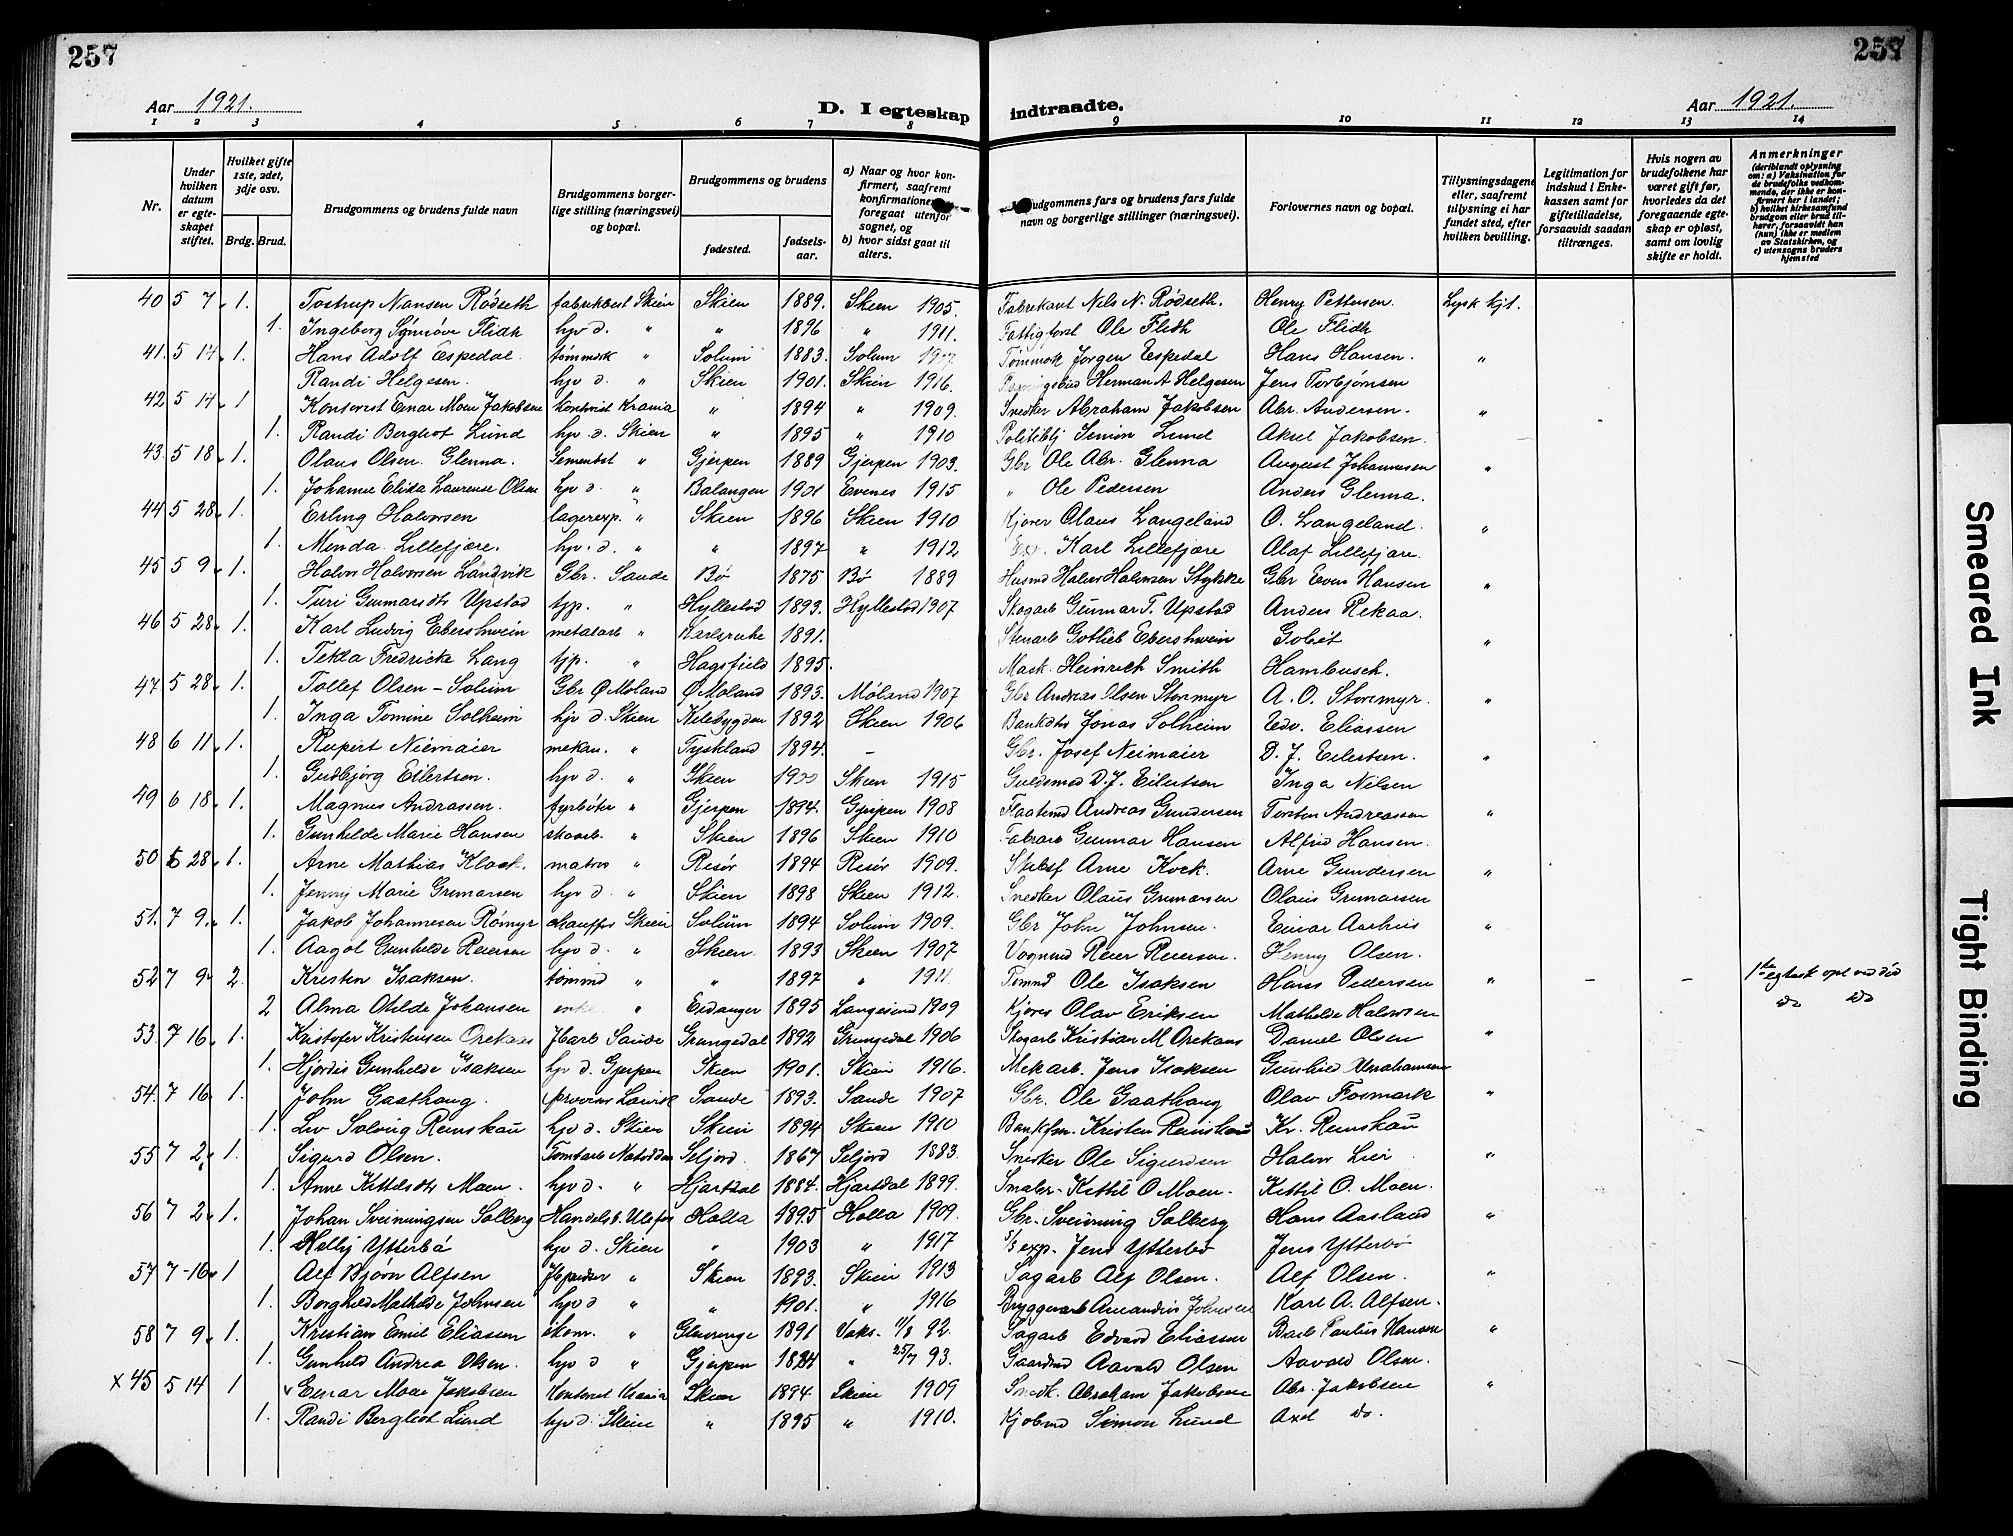 257
257
Aar 1921.
D. I egteskap indtraadte.
Aar 1921.
1 2 3 4 5 6 7 8 9 10 11 12 13 14
Nr.
Under hvilken datum er egteskapet stiftet.
Hvilket gifte 1ste, 2det, 3dje osv.
Brdg. Brud.
Brudgommens og brudens fulde navn
Brudgommens borgerlige stilling (næringsvei) og bopæl.
Brudgommens og brudens
fødested.
fødselsaar.
a) Naar og hvor konfirmert, saafremt konfirmationen foregaat utenfor sognet, og
b) hvor sidst gaat til alters.
Brudgommens fars og brudens fars fulde navn og borgerlige stillinger (næringsvei).
Forlovernes navn og bopæl.
Tillysningsdagene eller, saafremt tillysning ei har fundet sted, efter hvilken bevilling.
Legitimation for indskud i Enkekassen samt for giftetilladelse, forsaavidt saadan tiltrænges.
Hvis nogen av brudefolkene har været gift før, hvorledes da det foregaaende egteskap er opløst, samt om lovlig skifte er holdt.
Anmerkninger (deriblandt oplysning om: a) Vaksination for de brudefolks vedkommende, der ikke er konfirmert her i landet; b) hvilket kirkesamfund brudgom eller brud tilhører, forsaavidt han (hun) ikke er medlem av Statskirken, og c) utensogns bruders hjemsted
40 5 7 1. Tostrup Nansen Rødseth fabrikbest Skien Skien 1889. Skien 1905. Fabrekant Nels N. Rødseth. Henry Pettersen. Lysk kjt.
1. Ingeberg Synnøve Flidh hjv d. " " 1896 " 1911. Fattigforst Ole Flidh Ole Flidh
41. 5 14 1. Hans Adolf Espedal. tømmerk " Solum 1883. Solum Tømmerk Jørgen Espedal Hans Hansen. "
Randi Helgesen. hjv d. " Skien 1901. Skien 1916. Herman A Helgesen Jens Torbjørnsen
42 5 14 1 Kontorist Einar Moen Jakobsen kontorist Krania " 1894 " 1909. Snedker Abraham Jakobsen Abr. Andersen. "
1. Randi Bergliot Lund hjv d. Skien " 1895 " 1910 Politibtj Simon Lund Aksel Jakobsen.
43. 5 18 1. Olaus Olsen Glenna. Sementst " Gjerpen 1889 Gjerpen 1903. Gbr Ole Abr. Glenna August Johannesen "
1. Johanne Elida Laurense Olsen hjv d. " Balangen 1901 Evenes 1915 " Ole Pedersen Anders Glenna.
44 5 28 1. Erling Halvorsen lagerexp. " Skien 1896 Skien 1910 Kjører Olaus Langeland O. Langeland. "
1. Menda Lillefjære. hjv. d. " " 1897 " 1912 Exp. Karl Lillefjære Olaf Lillefjære.
45 5 9 1. Halvor Halvorsen Landvik Gbr. Saude Bø 1875 Bø 1889 Husmd Halvor Halvorsen Stykke Gbr Even Hansen "
1. Turi Gunnarsdtr Upstad tjp. " Hyllestad 1893. Hyllestad 1907 Skogarb Gunnar T. Upstad Anders Rekaa.
46 5 28 1. Karl Ludvig Ebershwein metalarb " Karlsruhe 1891. Stenarb Gotlieb Ebershwein Goliet "
1. Tekla Fredricke Lang tjp. " Hagsfield 1895. Mask. Heinrich Smith Hambusch.
47 5 28 1. Tollef Olsen - Solum Gbr Ø Moland Ø Moland 1893. Møland 1907 Gbr Andreas Olsen Stormyr A. O. Storemyr. "
1. Inga Tomine Solheim hjv d. Skien Kilebygden 1892 Skien 1906 Bankdts Jonas Solheim Edv. Eliassen
48 6 11 1. Rupert Niemaier mekan. " Tyskland 1894. - Gbr. Josef Neimaier D. J. Eilertsen. "
1. Gudbjørg Eilertsen. hjv d. " Skien Skien 1915 Guldsmed D. J. Eilertsen Inga Nilsen
49 6 18 1. Magnus Andrassen. fyrbøter " Gjerpen 1894. Gjerpen 1908 Flaatemd Andreas Gundersen Torsten Andreassen "
1. Gunhilde Marie Hansen skoarb. " Skien 1896 Skien 1910 Fabrarb Gunnar Hansen Alfred Hansen.
50 5 28 1. Arne Mathias Klock. matros " Risør 1894 Risør 1909. Arne Kock. Arne Gundersen "
1. Jenny Marie Grumarsen hjv d. " Skien 1898 Skien 1912. Snedker Olaus Grumarsen Olaus Grumarsen
51. 7 9. 1. Jakob Johannesen Rømyr chauffør Skien Solum 1894 Solum 1909. Gbr John Johnsen. Einar Aarhus "
1. Aagot Gunhilde Reiersen hjv d. " Skien. 1893 Skien 1907 Vognmd Reier Reiersen. Henny Olsen.
52 7 9 2. Kristen Isaksen. tømmd " " 1897 " 1911 Tømmd Ole Isaksen Hans Pedersen " - - 1ste egtesk opl ved død
2 Alma Otilde Johansen enke " Eidanger 1895 Langesund 1909 Kjører Olav Eriksen Mathilde Halvorsen do do
53. 7 16 1. Kristofer Kristensen Orekaas Jbarb Saude Grungedal 1892 Grungedal 1906 Skogarb Kristian M Orekaas Daniel Olsen "
1. Hjørdis Gunhilde Isaksen hjv d. Gjerpen Skien 1901. Skien 1916. Mekarb. Jens Isaksen Gunhild Abrahamsen
54. 7 16 1. John Gaathaug. Larvik Saude 1893. Saude 1907 Gbr. Ole Gaathaug Olav Fosmark "
1. Liv Solveig Reinskau hjv d. Skien Skien 1894 Skien 1910 Bankfm. Kristen Reinskau Kr. Reinskau
55 7 2 1. Sigurd Olsen. Tomtarb Notodden Seljord. 1867 Seljord 1883. Snedker Ole Sigurdsen Halvor Lier "
1. Anne Kittilsdtr Moen. hjv d. " Hjartdal 1884. Hjartdal 1899. Smaler. Kettil O Moen. Kittil O. Moen.
56 7 2 1. Johan Sveinungsen Solberg Handelsb. Ulefos Holla 1895 Holla 1909. Gbr. Sveinung Solberg Hans Aasland "
1. Helly Ytterbø hjv d. Skien " 1903 " 1917 exp. Jens Ytterbø Jens Ytterbø
57 7 - 16 1 Alf Bjørn Alfsen " Skien 1893. Skien 1913 Sagarb Alf Olsen. Alf Olsen. "
1. Borghild Mathilde Johnsen hjv d " " 1901. " 1916 Bryggeriarb Amandus Johnsen Karl A. Alfsen.
58 7 9. 1. Kristian Emil Eliassen skom. " Glavenge 1891 Vaks. 11/8 92. Sagarb Edvard Eliassen Barb Paulus Hansen "
1. Gunhild Andrea Olsen. hjv d " Gjerpen 1894 " 25/7 93. Gaardmd Aavald Olsen Aavald Olsen.
x 45 5 14 1 Einar Moen Jakobsen Kontorist Krania Skien 1894 Skien 1909 Snedk. Abraham Jakobsen Abr. Jakobsen "
1. Randi Bergliot Lund hjv d. Skien " 1895 " 1910. Kjøbmd Simon Lund Axel do.
Smeared Ink
Tight Binding